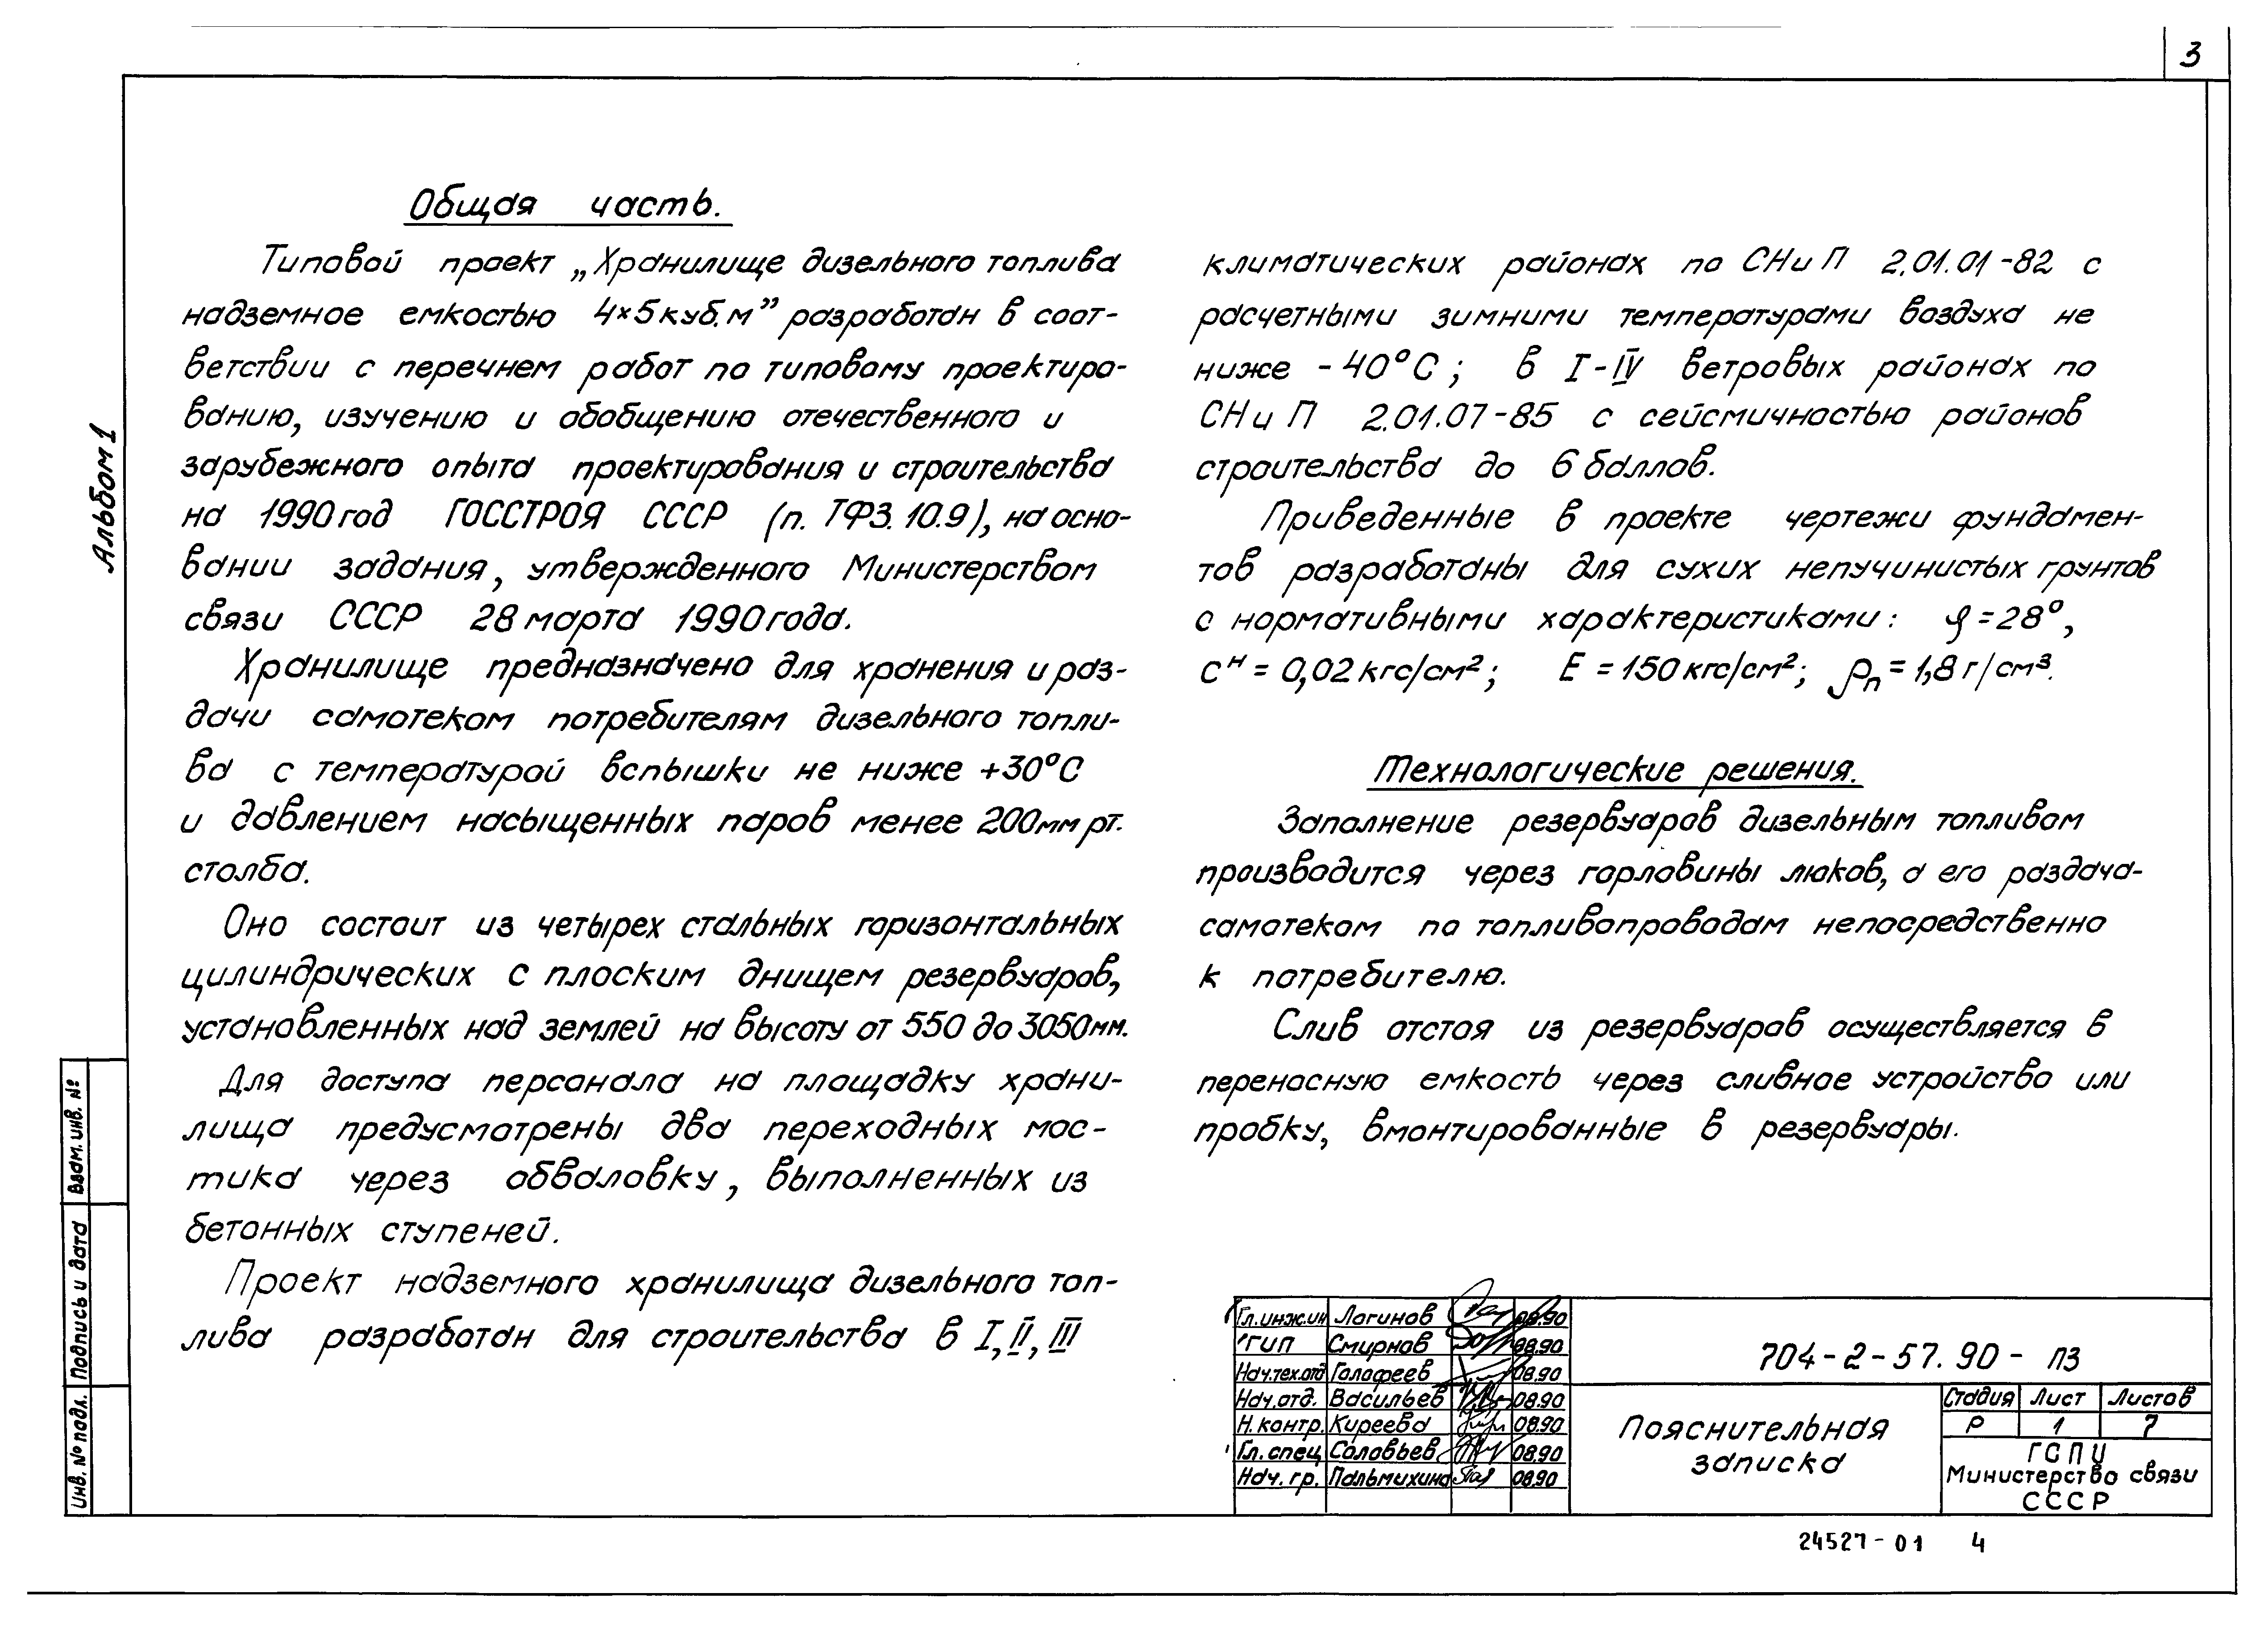 3
Альбом 1
Общая часть.
Типовой проект „Хранилище дизельного топлива
надземное емкостью 4×5 куб.м” разработан в соот-
ветствии с перечнем работ по типовому проектиро-
ванию, изучению и обобщению отечественного и
зарубежного опыта проектирования и строительства
на 1990 год ГОССТРОЯ СССР (п. ТФ3.10.9), на осно-
вании задания, утвержденного Министерством
связи СССР 28 марта 1990 года.
Хранилище предназначено для хранения и раз-
дачи самотеком потребителям дизельного топли-
ва с температурой вспышки не ниже +30°С
и давлением насыщенных паров менее 200мм рт.
столба.
Оно состоит из четырех стальных горизонтальных
цилиндрических с плоским днищем резервуаров,
установленных над землей на высоту от 550 до 3050мм.
Для доступа персонала на площадку храни-
лища предусмотрены два переходных мос-
тика через обваловку, выполненных из
бетонных ступеней.
Проект надземного хранилища дизельного топ-
лива разработан для строительства в I, II, III
климатических районах по СНиП 2.01.01-82 с
расчетными зимними температурами воздуха не
ниже -40°С; в I-IV ветровых районах по
СНиП 2.01.07-85 с сейсмичностью районов
строительства до 6 баллов.
Приведенные в проекте чертежи фундамен-
тов разработаны для сухих непучинистых грунтов
с нормативными характеристиками: φ=28°,
Cᴴ = 0,02 кгс/см²; Е = 150 кгс/см²; ρп = 1,8 г/см³.
Технологические решения.
Заполнение резервуаров дизельным топливом
производится через горловины люков, а его раздача-
самотеком по топливопроводам непосредственно
к потребителю.
Слив отстоя из резервуаров осуществляется в
переносную емкость через сливное устройство или
пробку, вмонтированные в резервуары.
Взам. инв. №
Подпись и дата
Инв. № подл.
Гл.инж.ин Логинов 08.90
ГИП Смирнов 08.90
Нач.тех.отд Голофеев 08.90
Нач.отд. Васильев 08.90
Н.контр. Киреева 08.90
Гл.спец Соловьев 08.90
Нач.гр. Пальмихина 08.90
704-2-57.90- ПЗ
Пояснительная
записка
Стадия Лист Листов
Р 1 7
ГСПИ
Министерство связи
СССР
24527-01 4